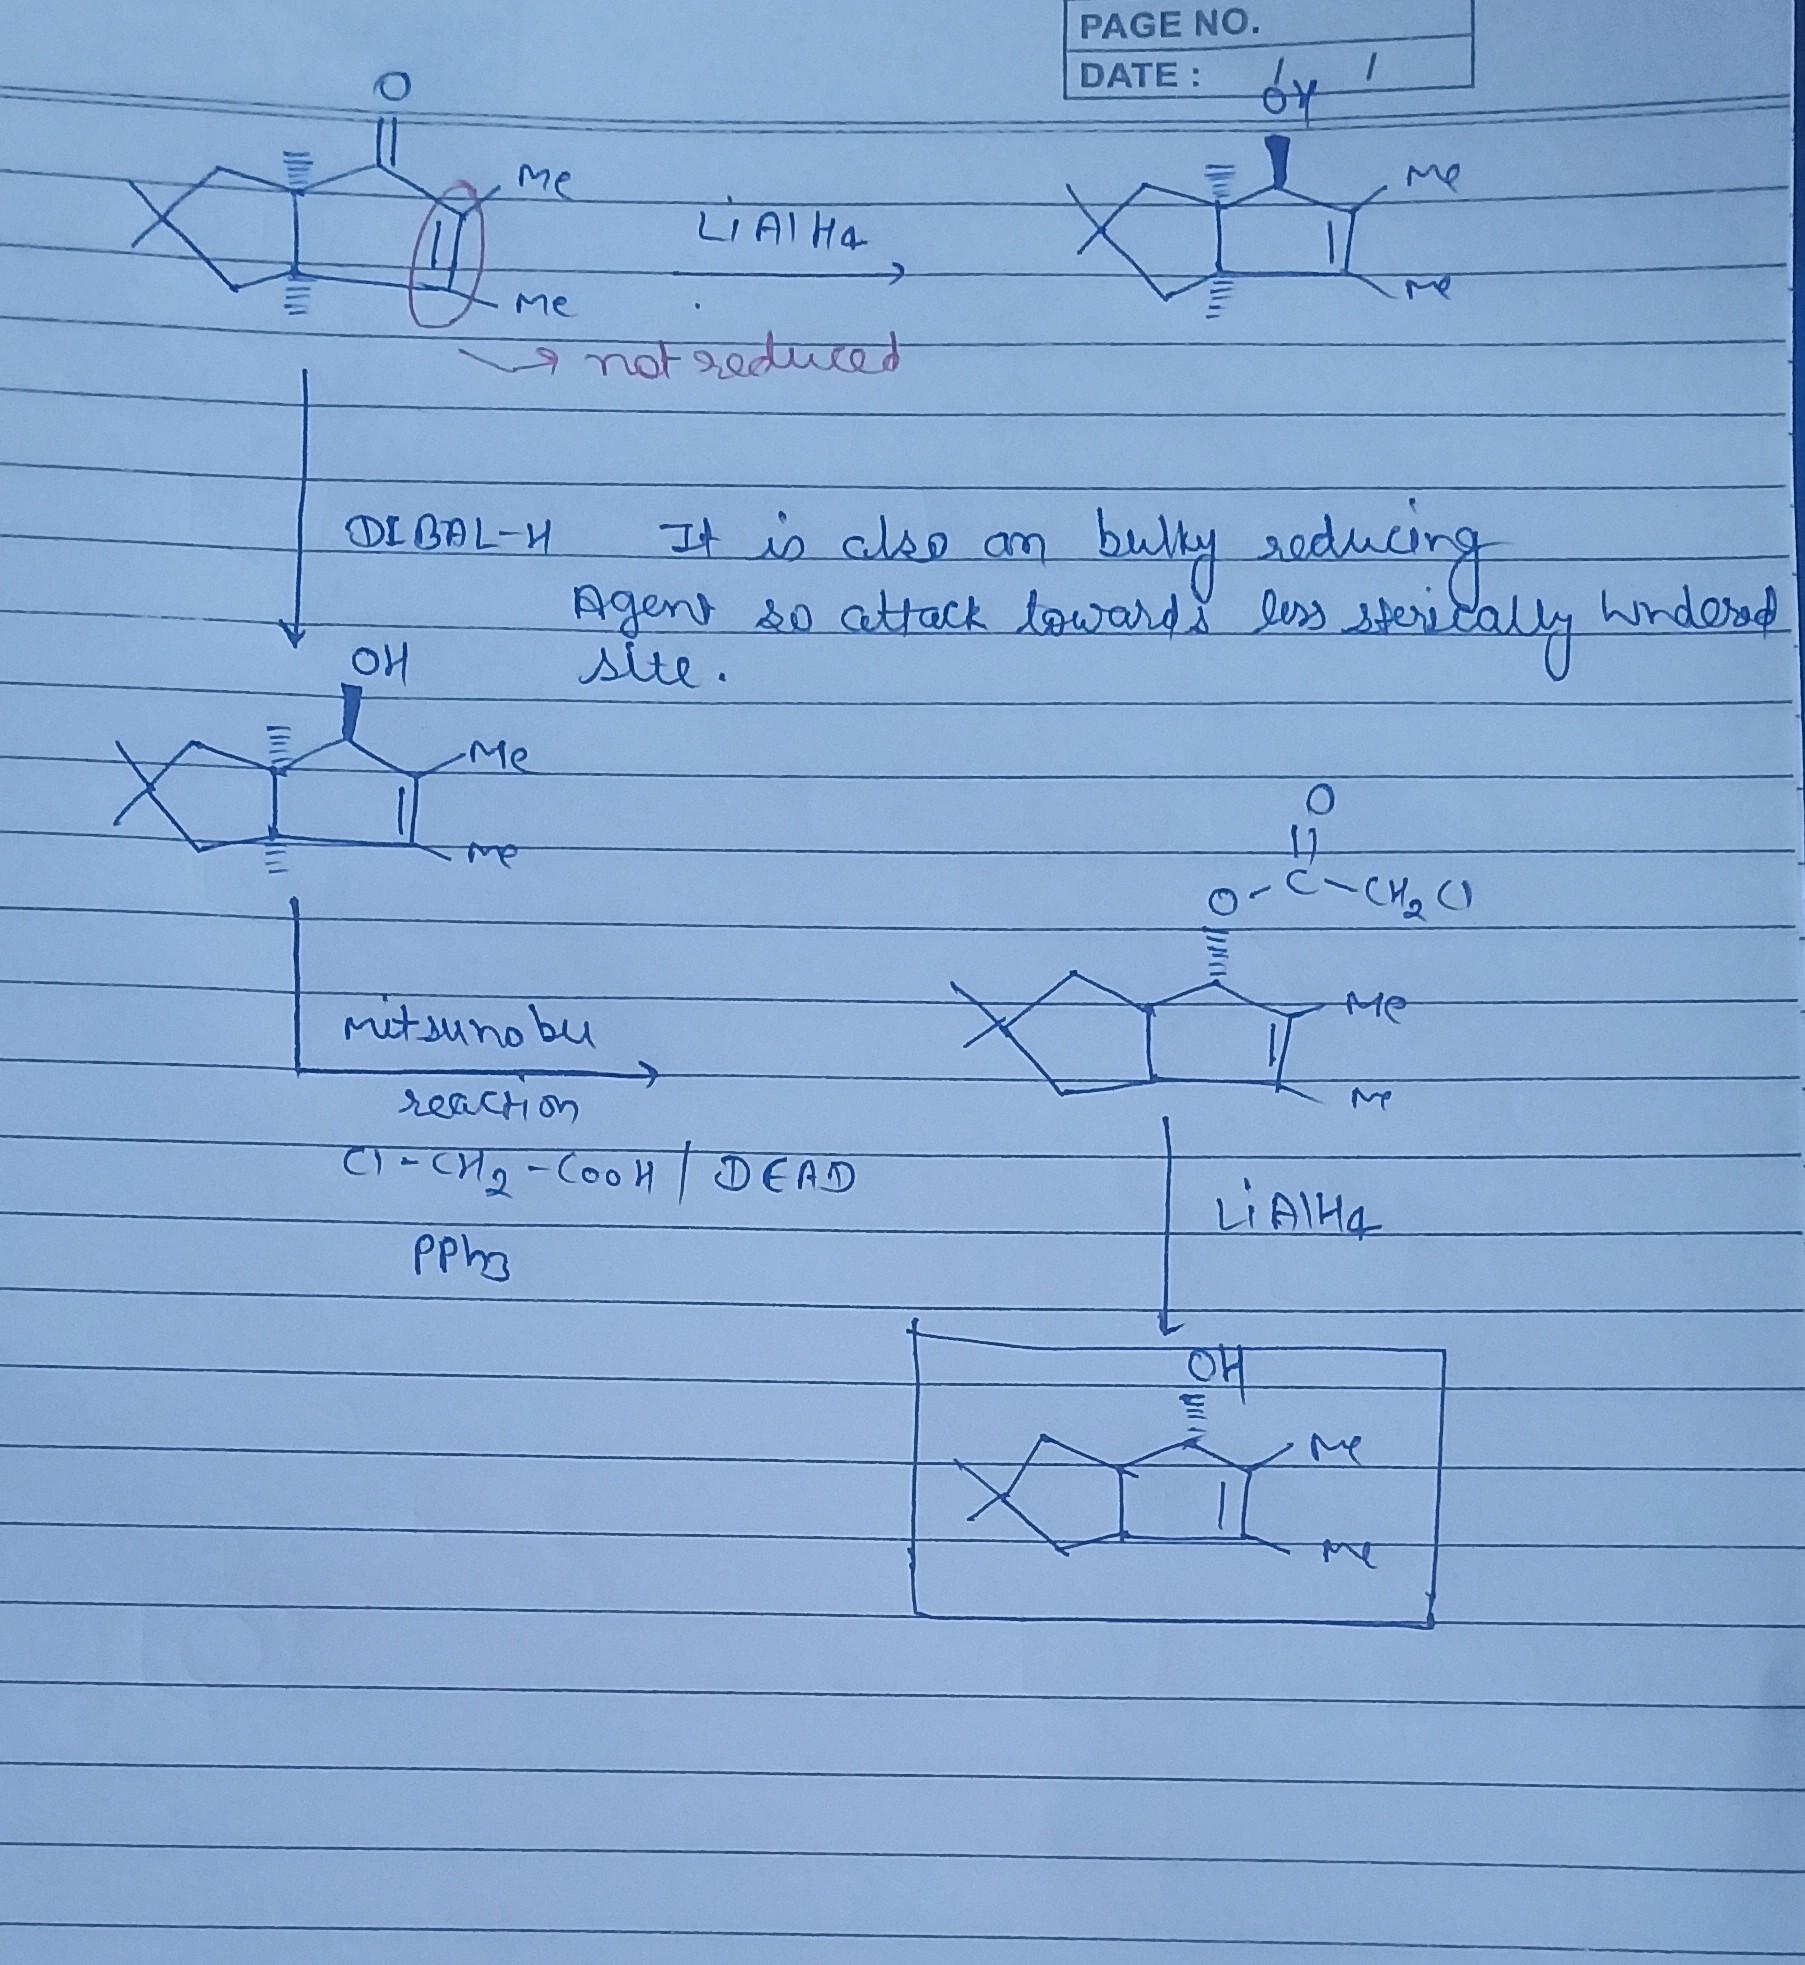 PAGE NO.
DATE : / /
O
OH
Me
Me
LiAlH4
Me
Me
→ not reduced
DIBAL-H It is also an bulky reducing
Agent so attack towards less sterically hindered
site.
OH
Me
Me
O
O-C-CH2Cl
Me
Me
mitsunobu
reaction
Cl-CH2-COOH / DEAD
PPh3
LiAlH4
OH
Me
Me